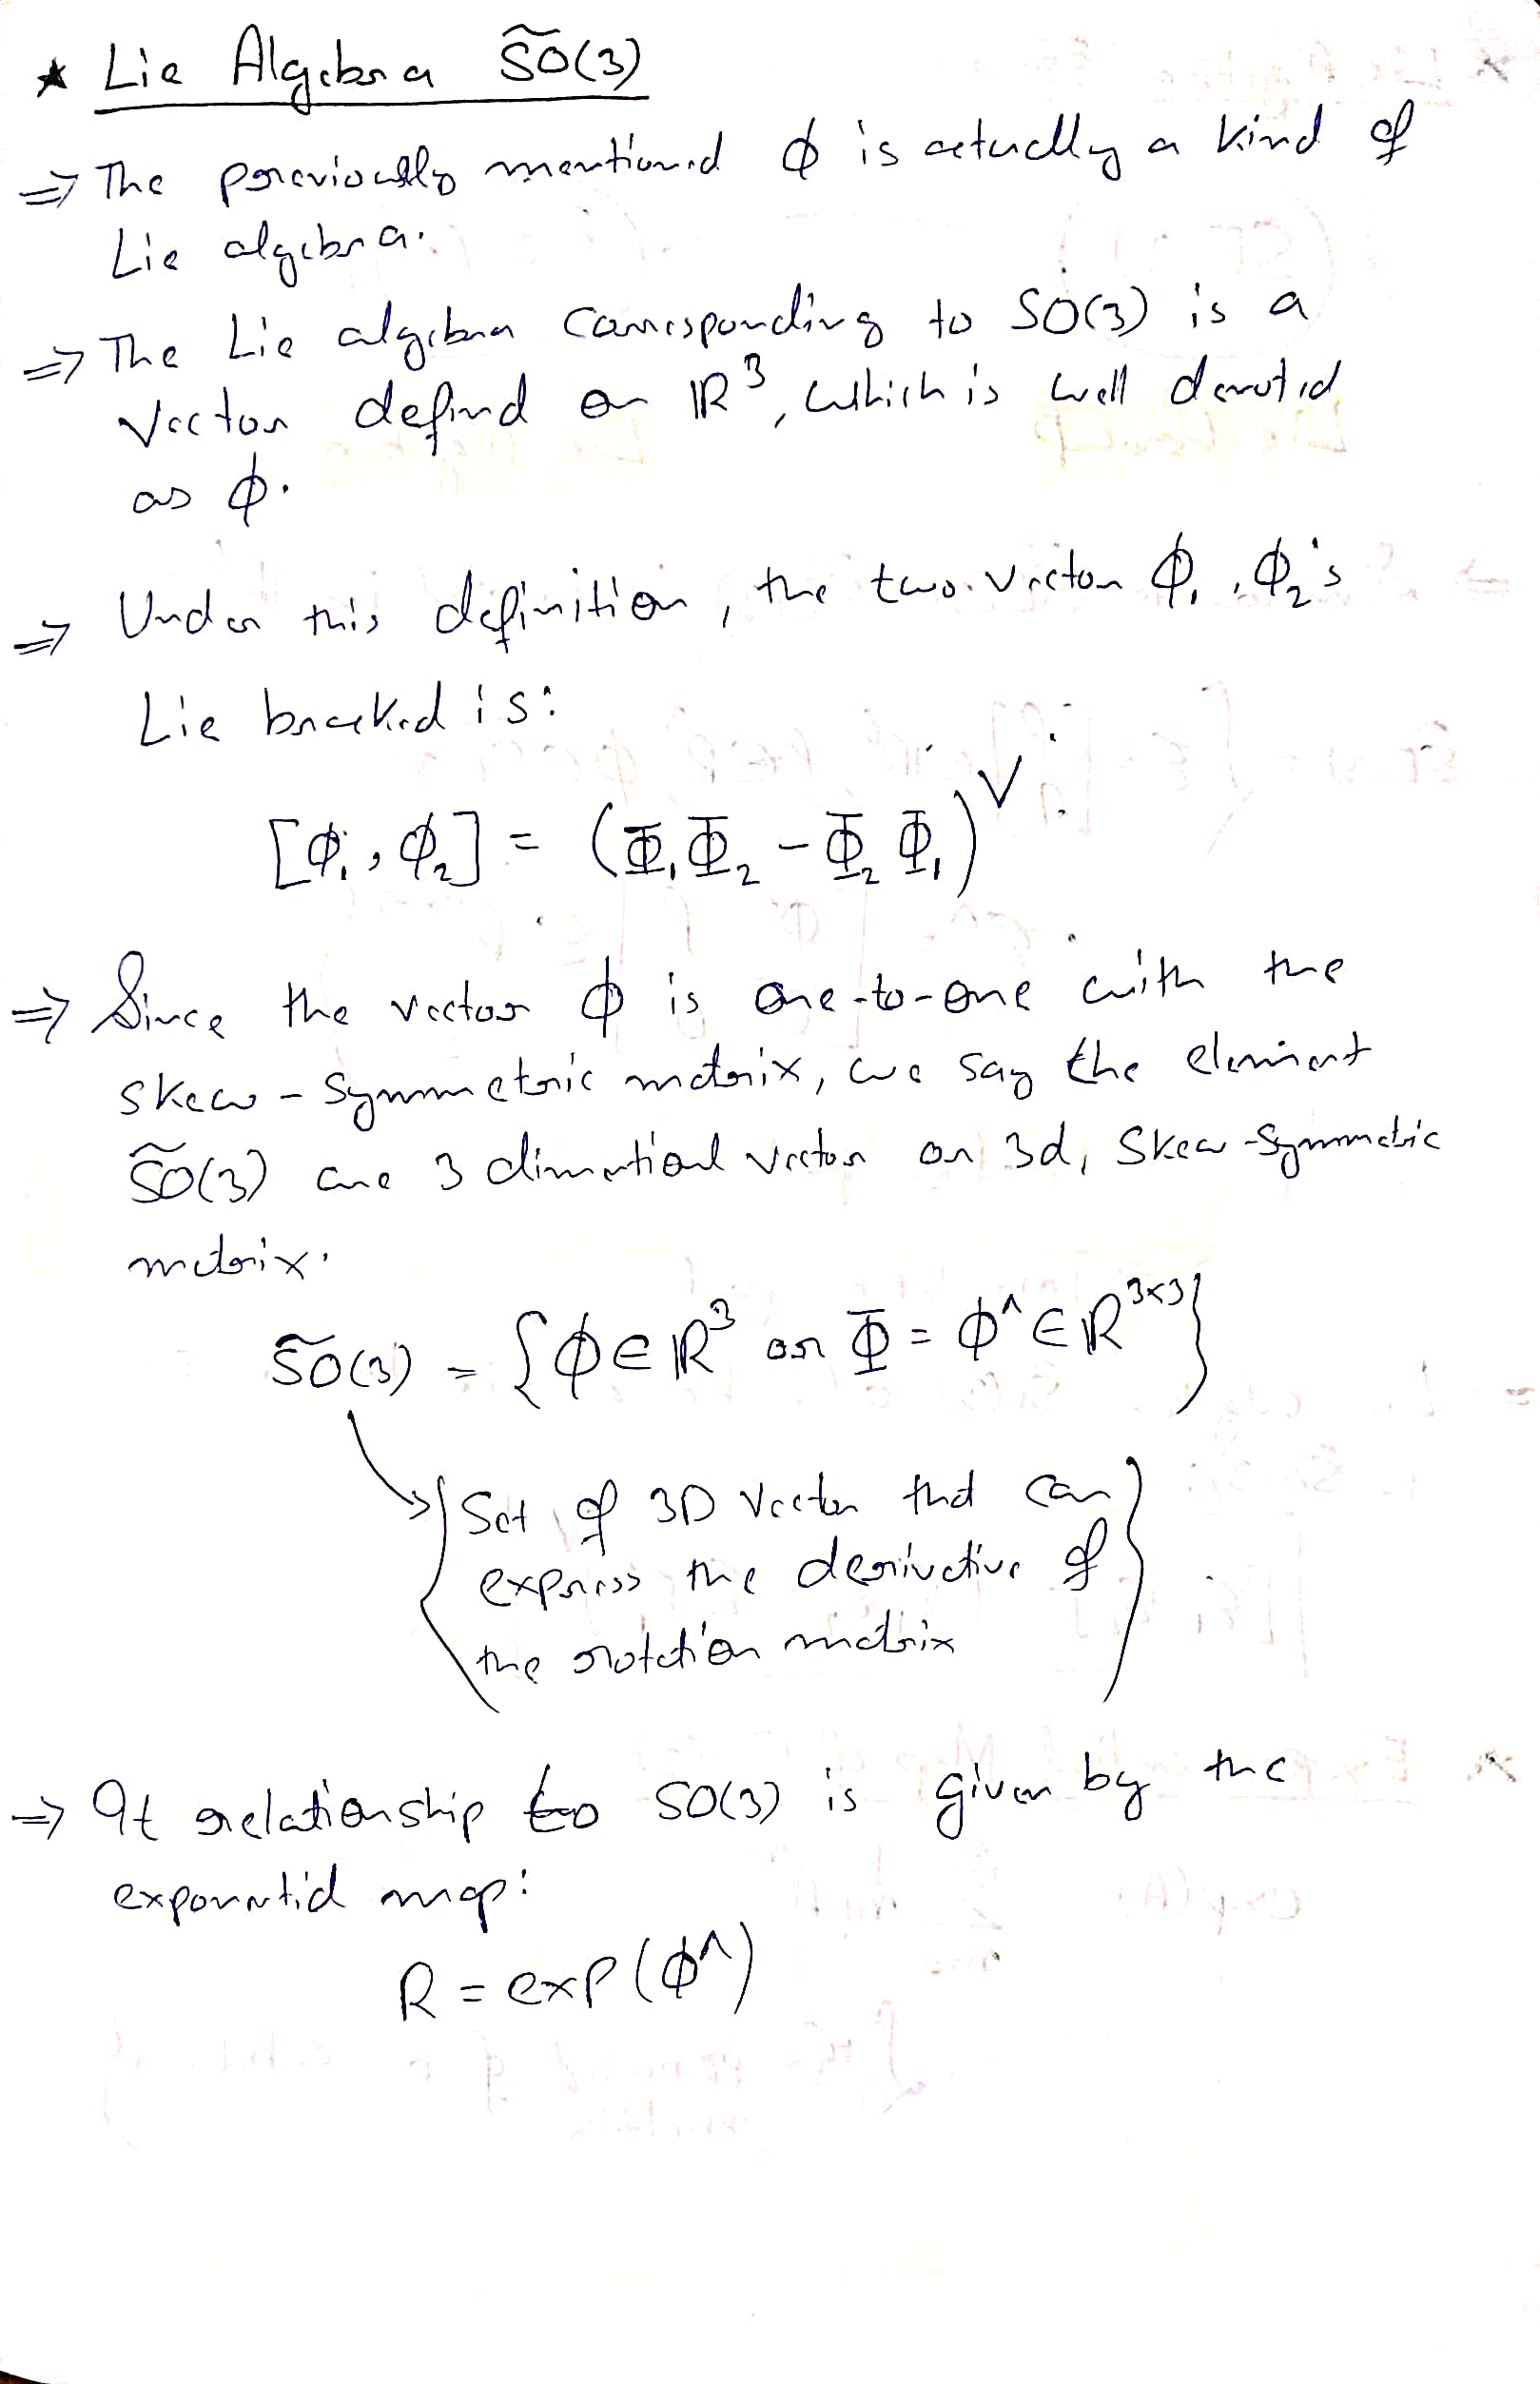 * Lie Algebra s̃o(3)
⇒ The previously mentioned ϕ is actually a kind of
Lie algebra.
⇒ The Lie algebra corresponding to SO(3) is a
Vector defind on ℝ³, which is well denoted
as ϕ.
⇒ Under this definition, the two vector ϕ₁, ϕ₂'s
Lie bracked is:
[ϕ₁, ϕ₂] = (Φ₁Φ₂ - Φ₂Φ₁)^∨
⇒ Since the vector ϕ is one-to-one with the
skew-symmetric matrix, we say the element
s̃o(3) are 3 dimentional vector or 3d, Skew-Symmetric
matrix.
s̃o(3) = {ϕ∈ℝ³ or Φ = ϕ^∧∈ℝ³ˣ³}
Set of 3D Vector that can
express the derivative of
the rotation matrix
⇒ It relationship to SO(3) is given by the
exponential map:
R = exp(ϕ^∧)